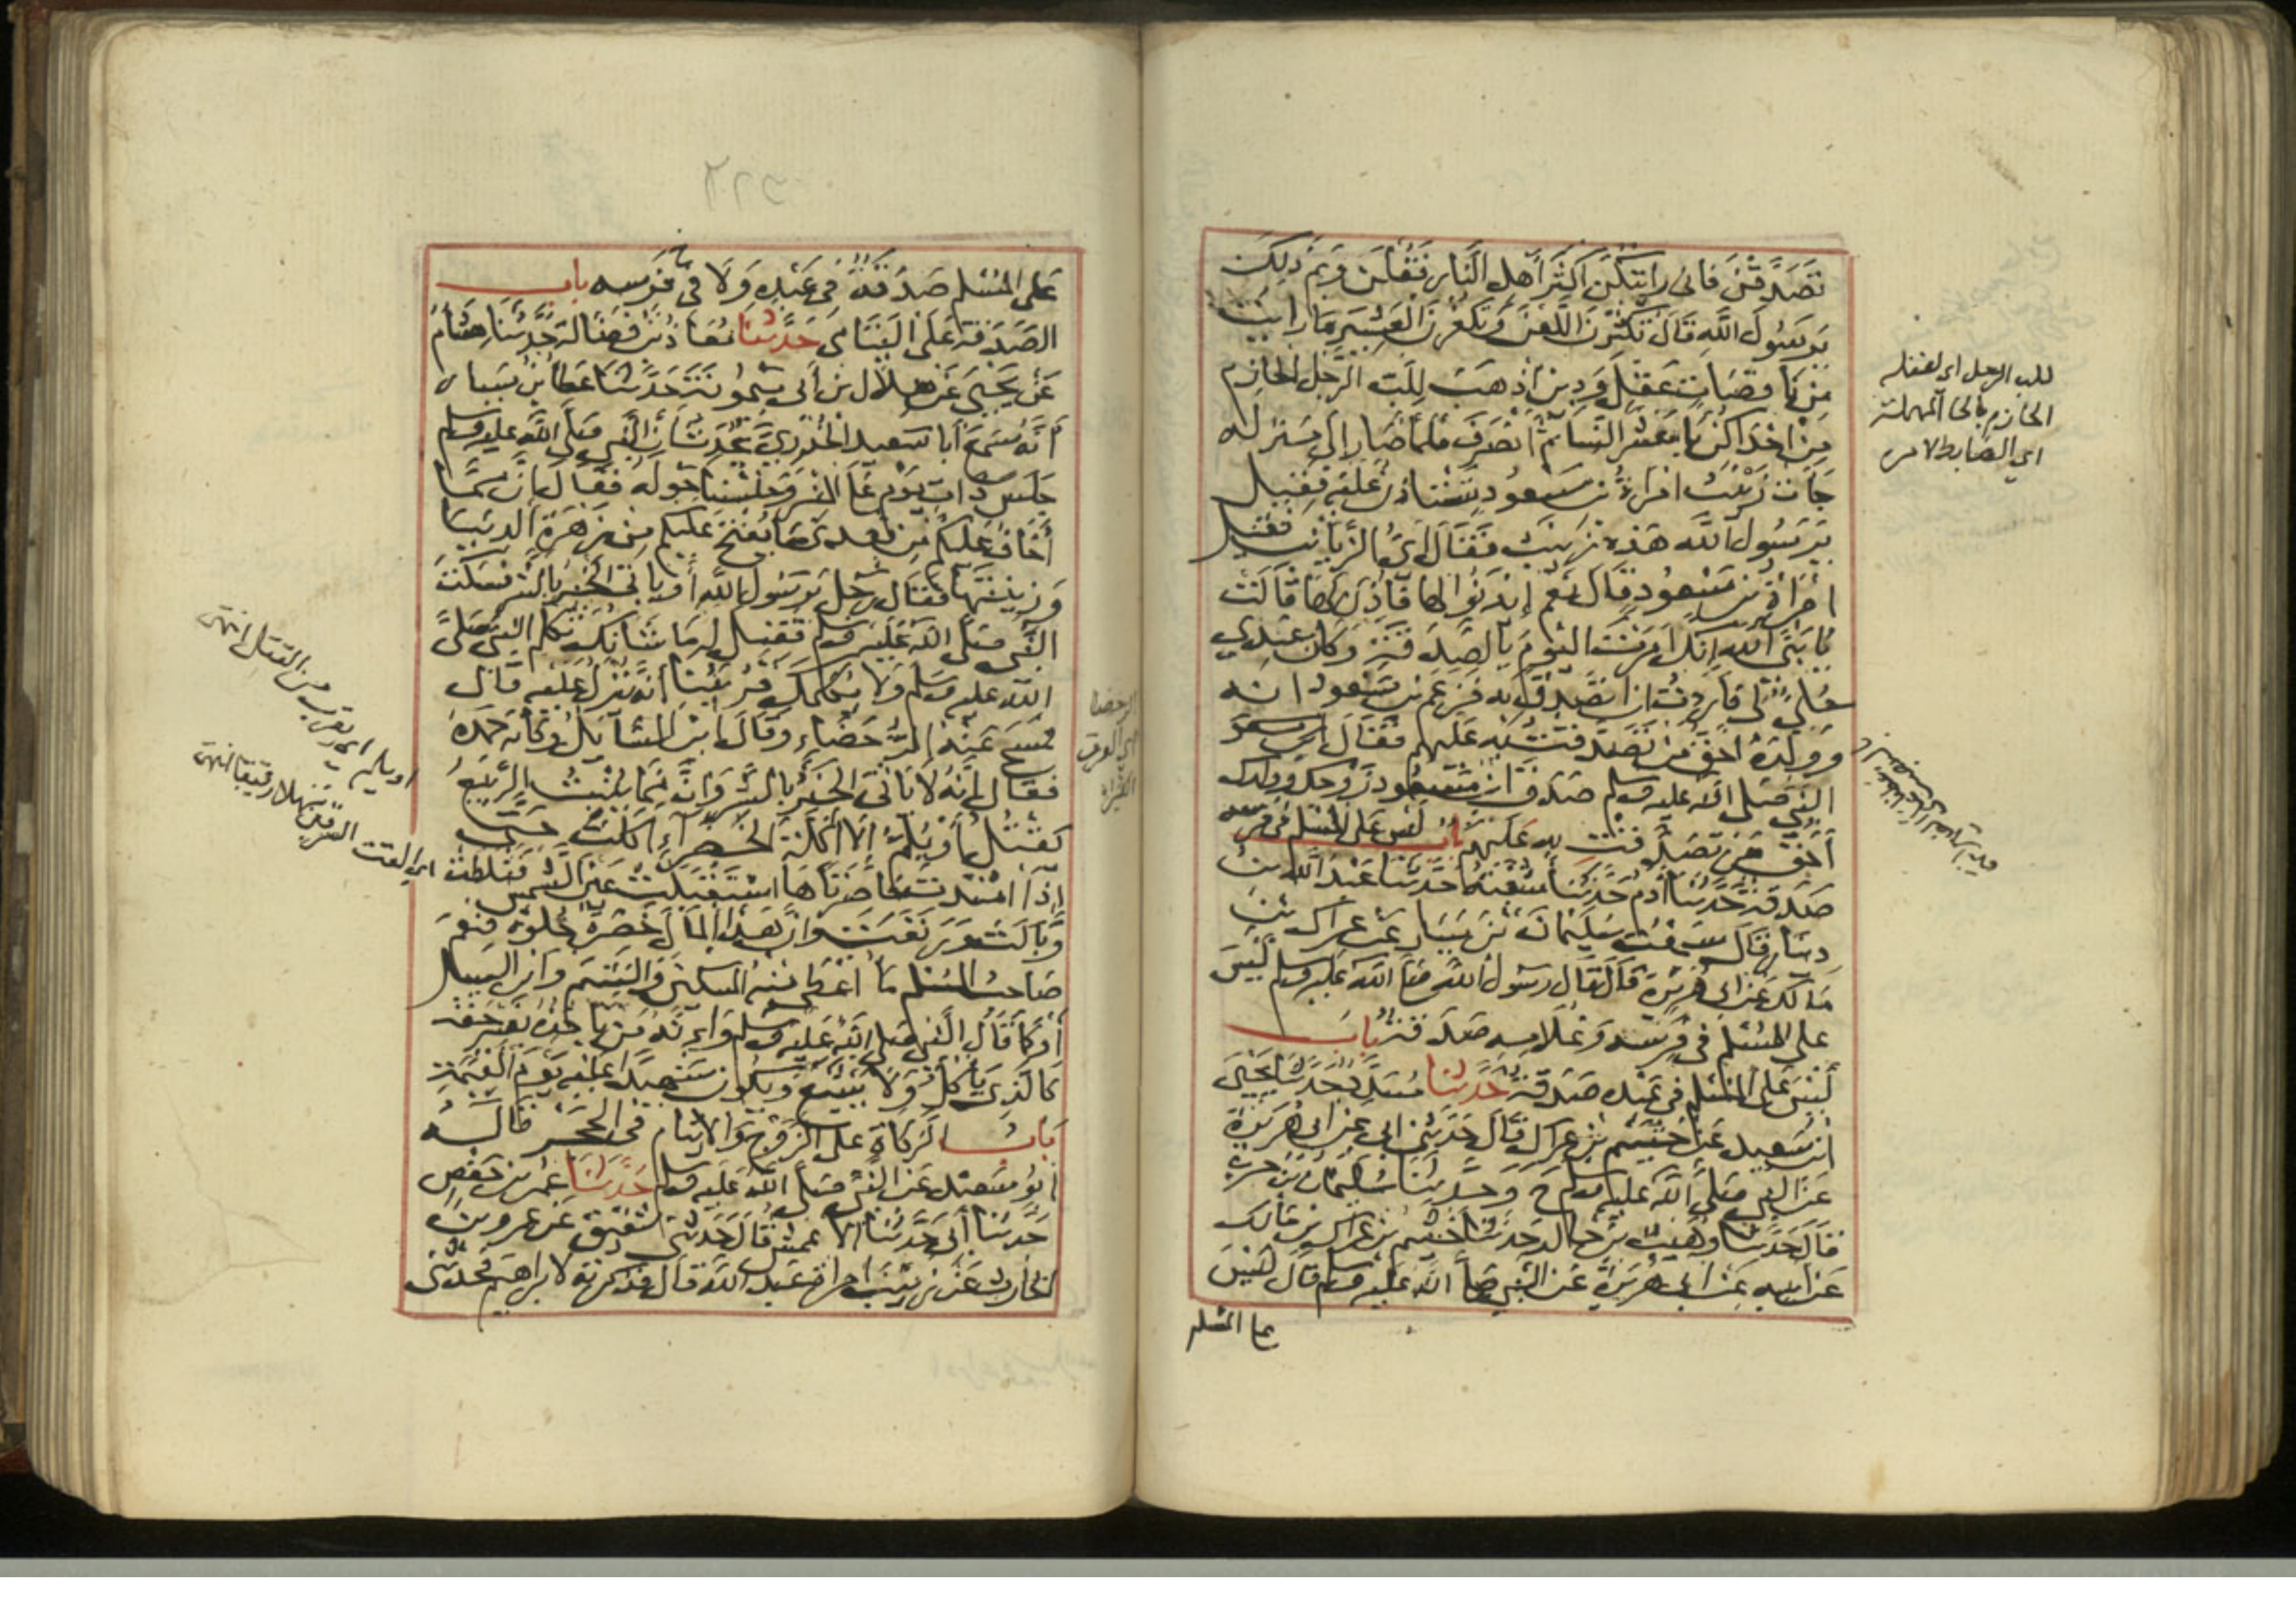 تَصَدَّقْنَ فانى رايتكن اكثر أهل النار فقلن وبم ذلك
يرسول الله قال تكثرن اللعن وتكفرن العشير ما رايت
من ناقصات عقل ودين أذهب للب الرجل الحازم
من احداكن يا معشر النسا ثم انصرف فلما صار إلى منزله
جات زينب امراة بن مسعود تستاذن عليه فقيل
يرسول الله هذه زينب فقال اي الزيانب فقيل
امراة بن مسعود قال نعم إيذنوا لها فأذن لها قالت
يا نبى الله انك امرت اليوم بالصدقة وكان عندي
حلي لى فاردت ان اتصدق به فزعم بن مسعود انه
وولده احق من تصدقت به عليهم فقال
النبي صلى الله عليه وسلم صدق ابن مسعود زوجك وولدك
أحق من تصدقت به عليهم باب ليس على المسلم فى فرسه
صدقة حدثنا آدم حدثنا شعبة حدثنا عبد الله بن
دينار قال سمعت سليمان بن يسار عن عراك بن
مالك عن ابى هريرة قال قال رسول الله صلى الله عليه وسلم ليس
على المسلم فى فرسه وغلامه صدقة باب
ليس على المسلم فى عبده صدقة حدثنا مسدد حدثنا يحيى
ابن سعيد عن خثيم بن عراك قال حدثنى ابى عن ابى هريرة
عن النبي صلى الله عليه وسلم ح وحدثنا سليمان بن حرب
قال حدثنا وهيب بن خالد حدثنا خثيم بن عراك بن مالك
عن ابيه عن ابى هريرة عن النبي صلى الله عليه وسلم قال ليس
على المسلم
للب الرجل اى لعقله
الحازم بالحا المهملة
اى الضابط لامره
على المسلم صدقة فى عبده ولا فى فرسه باب
الصدقة على اليتامى حدثنا معاذ بن فضالة حدثنا هشام
عن يحيى عن هلال بن أبى ميمونة حدثنا عطا بن يسار
أنه سمع أبا سعيد الخدري يحدث أن النبي صلى الله عليه وسلم
جلس ذات يوم على المنبر وجلسنا حوله فقال إن مما
أخاف عليكم من بعدى ما يفتح عليكم من زهرة الدنيا
وزينتها فقال رجل يرسول الله أو ياتى الخير بالشر فسكت
النبى صلى الله عليه وسلم فقيل له ما شانك تكلم النبي صلى
الله عليه وسلم ولا يكلمك فرئينا أنه ينزل عليه قال
فمسح عنه الرحضاء وقال اين السائل وكانه حمده
فقال إنه لا ياتى الخير بالشر وان مما ينبت الربيع
يقتل أو يلم إلا اكلة الخضراء اكلت حتى
إذا امتدت خاصرتاها استقبلت عين الشمس فثلطت
وبالت ورتعت وان هذا المال خضرة حلوة فنعم
صاحب المسلم ما أعطى منه المسكين واليتيم وابن السبيل
أو كما قال النبى صلى الله عليه وسلم وإنه من ياخذه بغير حقه
كالذى يأكل ولا يشبع ويكون شهيدا عليه يوم القيمة
باب الزكاة على الزوج والايتام فى الحجر قاله
أبو سعيد عن النبى صلى الله عليه وسلم حدثنا عمر بن حفص
حدثنا أبى حدثنا الاعمش قال حدثنى شقيق عن عمرو بن
الحارث عن زينب امراة عبد الله قال فذكرته لابراهيم فحدثنى
الرحضا
اى العرق
او يلم اى يقرب من القتل انتهى
اى القت السرقين سهلا رقيقا انتهى